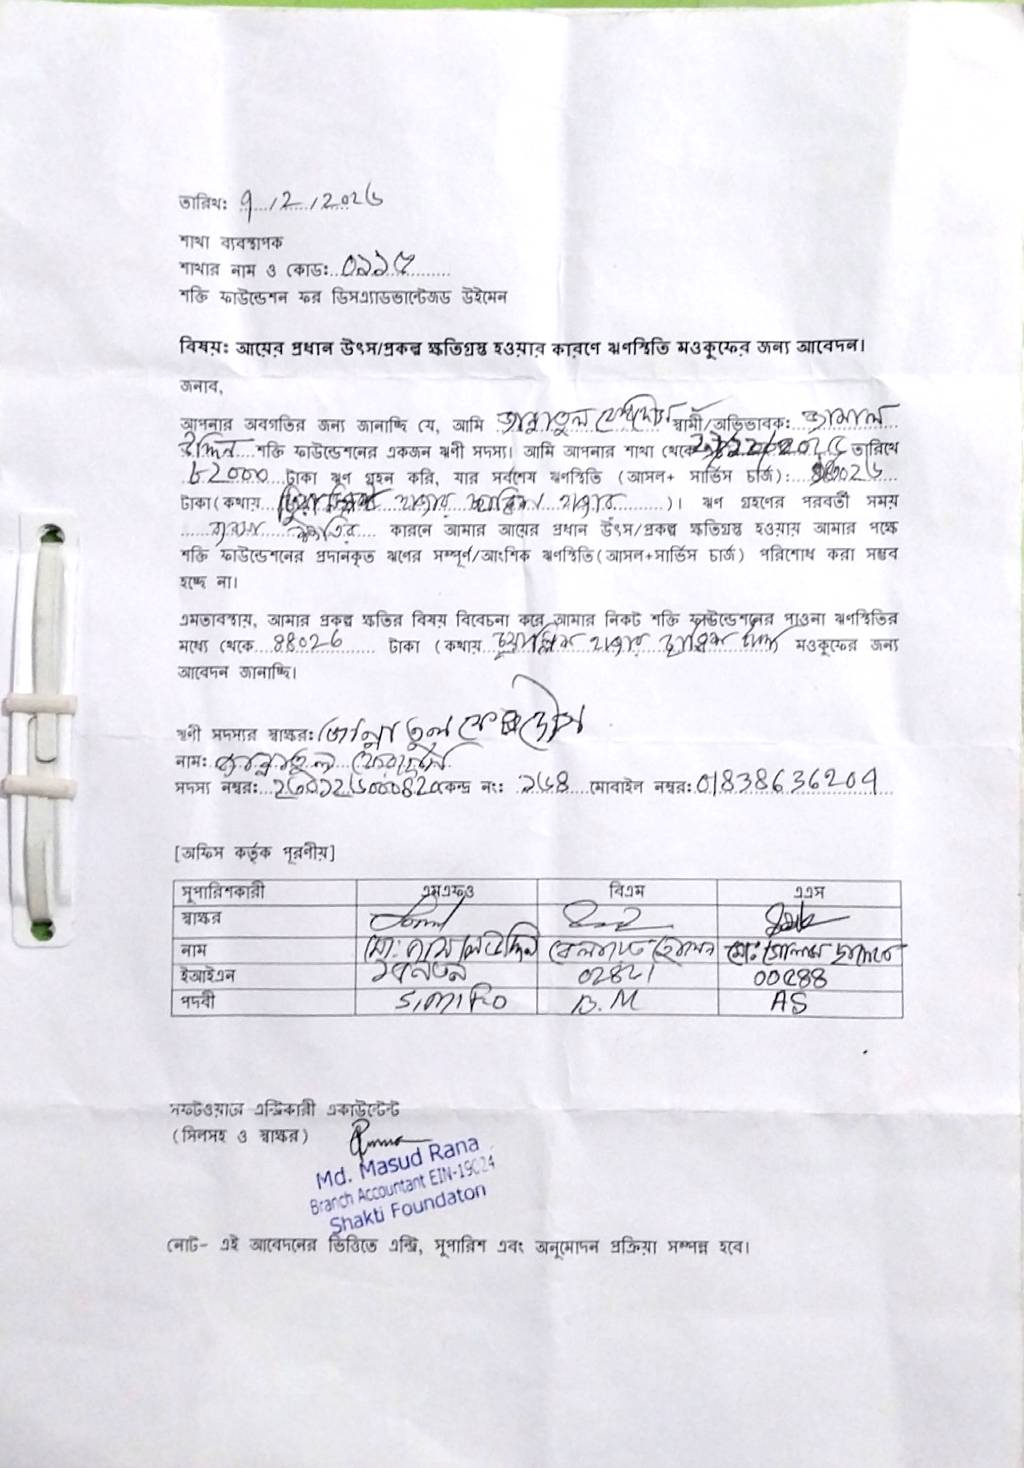 তারিখ: ৭/2/2026
শাখা ব্যবস্থাপক
শাখার নাম ও কোড: ০১১৫
শক্তি ফাউন্ডেশন ফর ডিসএ্যাডভান্টেজড উইমেন
বিষয়: আয়ের প্রধান উৎস/প্রকল্প ক্ষতিগ্রস্ত হওয়ার কারণে ঋণস্থিতি মওকুফের জন্য আবেদন।
জনাব,
আপনার অবগতির জন্য জানাচ্ছি যে, আমি জান্নাতুল ফেরদৌস স্বামী/অভিভাবক: জামাল
উদ্দিন শক্তি ফাউন্ডেশনের একজন ঋণী সদস্য। আমি আপনার শাখা থেকে তারিখে
৮2000 টাকা ঋণ গ্রহন করি, যার সর্বশেষ ঋণস্থিতি (আসল+ সার্ভিস চার্জ):
টাকা(কথায় হাজার)। ঋণ গ্রহণের পরবর্তী সময়
ব্যবসা ক্ষতির কারনে আমার আয়ের প্রধান উৎস/প্রকল্প ক্ষতিগ্রস্ত হওয়ায় আমার পক্ষে
শক্তি ফাউন্ডেশনের প্রদানকৃত ঋণের সম্পূর্ণ/আংশিক ঋণস্থিতি(আসল+সার্ভিস চার্জ) পরিশোধ করা সম্ভব
হচ্ছে না।
এমতাবস্থায়, আমার প্রকল্প ক্ষতির বিষয় বিবেচনা করে আমার নিকট শক্তি ফাউন্ডেশনের পাওনা ঋণস্থিতির
মধ্যে থেকে ৪৪০2৬ টাকা (কথায় চুয়াল্লিশ হাজার ছাব্বিশ টাকা মওকুফের জন্য
আবেদন জানাচ্ছি।
ঋণী সদস্যর স্বাক্ষর: জান্নাতুল ফেরদৌস
নাম: জান্নাতুল ফেরদৌস
সদস্য নম্বর: কেন্দ্র নং: ১৬৪ মোবাইল নম্বর: 01838636209
[অফিস কর্তৃক পূরণীয়]
সুপারিশকারী এমএফও বিএম এএস
স্বাক্ষর
নাম মো: বেলায়েত হোসেন মো: গোলাম
ইআইএন 02821 00288
পদবী B.M AS
সফটওয়্যারে এন্ট্রিকারী একাউন্টেন্ট
(সিলসহ ও স্বাক্ষর)
Md. Masud Rana
Branch Accountant EIN-19024
Shakti Foundaton
নোট- এই আবেদনের ভিত্তিতে এন্ট্রি, সুপারিশ এবং অনুমোদন প্রক্রিয়া সম্পন্ন হবে।